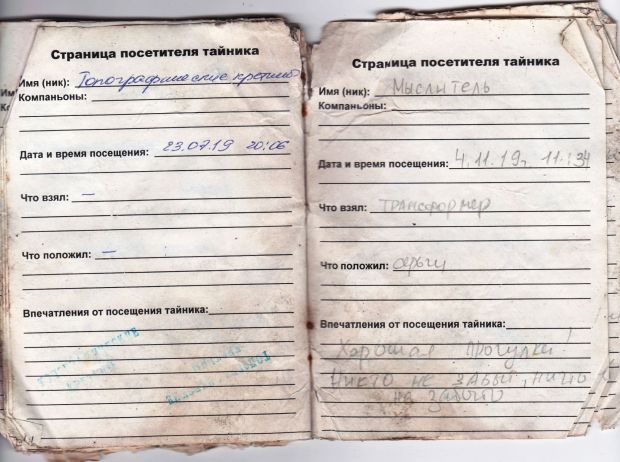 Страница посетителя тайника
Имя (ник): Топографические кретины
Компаньоны:
Дата и время посещения: 23.07.19 20:06
Что взял: —
Что положил: —
Впечатления от посещения тайника:
Страница посетителя тайника
Имя (ник): Мыслитель
Компаньоны:
Дата и время посещения: 4.11.19г. 11:34
Что взял: ТРАНСФОРМЕР
Что положил: серьги
Впечатления от посещения тайника:
Хорошая прогулка!
Никто не забыт, ничто
не забыто